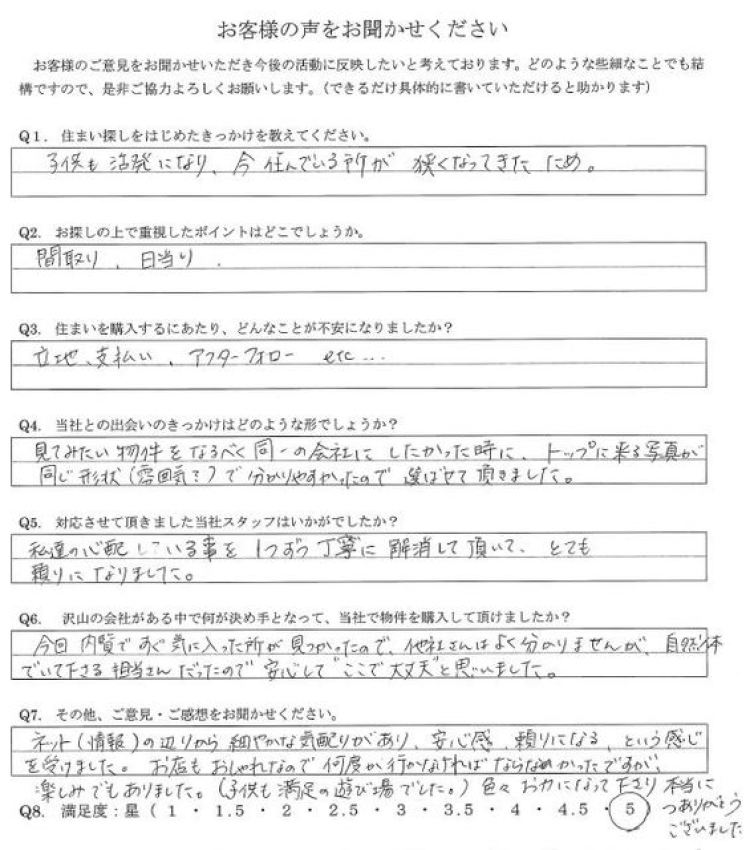 お客様の声をお聞かせください
お客様のご意見をお聞かせいただき今後の活動に反映したいと考えております。どのような些細なことでも結
構ですので、是非ご協力よろしくお願いします。（できるだけ具体的に書いていただけると助かります）
Q1. 住まい探しをはじめたきっかけを教えてください。
子供も活発になり、今住んでいる所が狭くなってきたため。
Q2. お探しの上で重視したポイントはどこでしょうか。
間取り、日当り.
Q3. 住まいを購入するにあたり、どんなことが不安になりましたか？
立地、支払い、アフターフォロー etc...
Q4. 当社との出会いのきっかけはどのような形でしょうか？
見てみたい物件をなるべく同一の会社にしたかった時に、トップに来る写真が
同じ形状(雰囲気？)で分かりやすかったので選ばせて頂きました。
Q5. 対応させて頂きました当社スタッフはいかがでしたか？
私達の心配している事を1つずつ丁寧に解消して頂いて、とても
頼りになりました。
Q6. 沢山の会社がある中で何が決め手となって、当社で物件を購入して頂けましたか？
今回内覧ですぐ気に入った所が見つかったので、他社さんはよく分かりませんが、自然体
でいて下さる担当さんだったので安心して"ここで大丈夫"と思いました。
Q7. その他、ご意見・ご感想をお聞かせください。
ネット(情報)の辺りから細やかな気配りがあり、安心感、頼りになる、という感じ
を受けました。お店もおしゃれなので何度か行かなければならなかったですが、
楽しみでもありました。(子供も満足の遊び場でした。)色々お力になって下さり本当に
つありがとう
ございました
Q8. 満足度：星（ 1 ・ 1.5 ・ 2 ・ 2.5 ・ 3 ・ 3.5 ・ 4 ・ 4.5 ・ 5